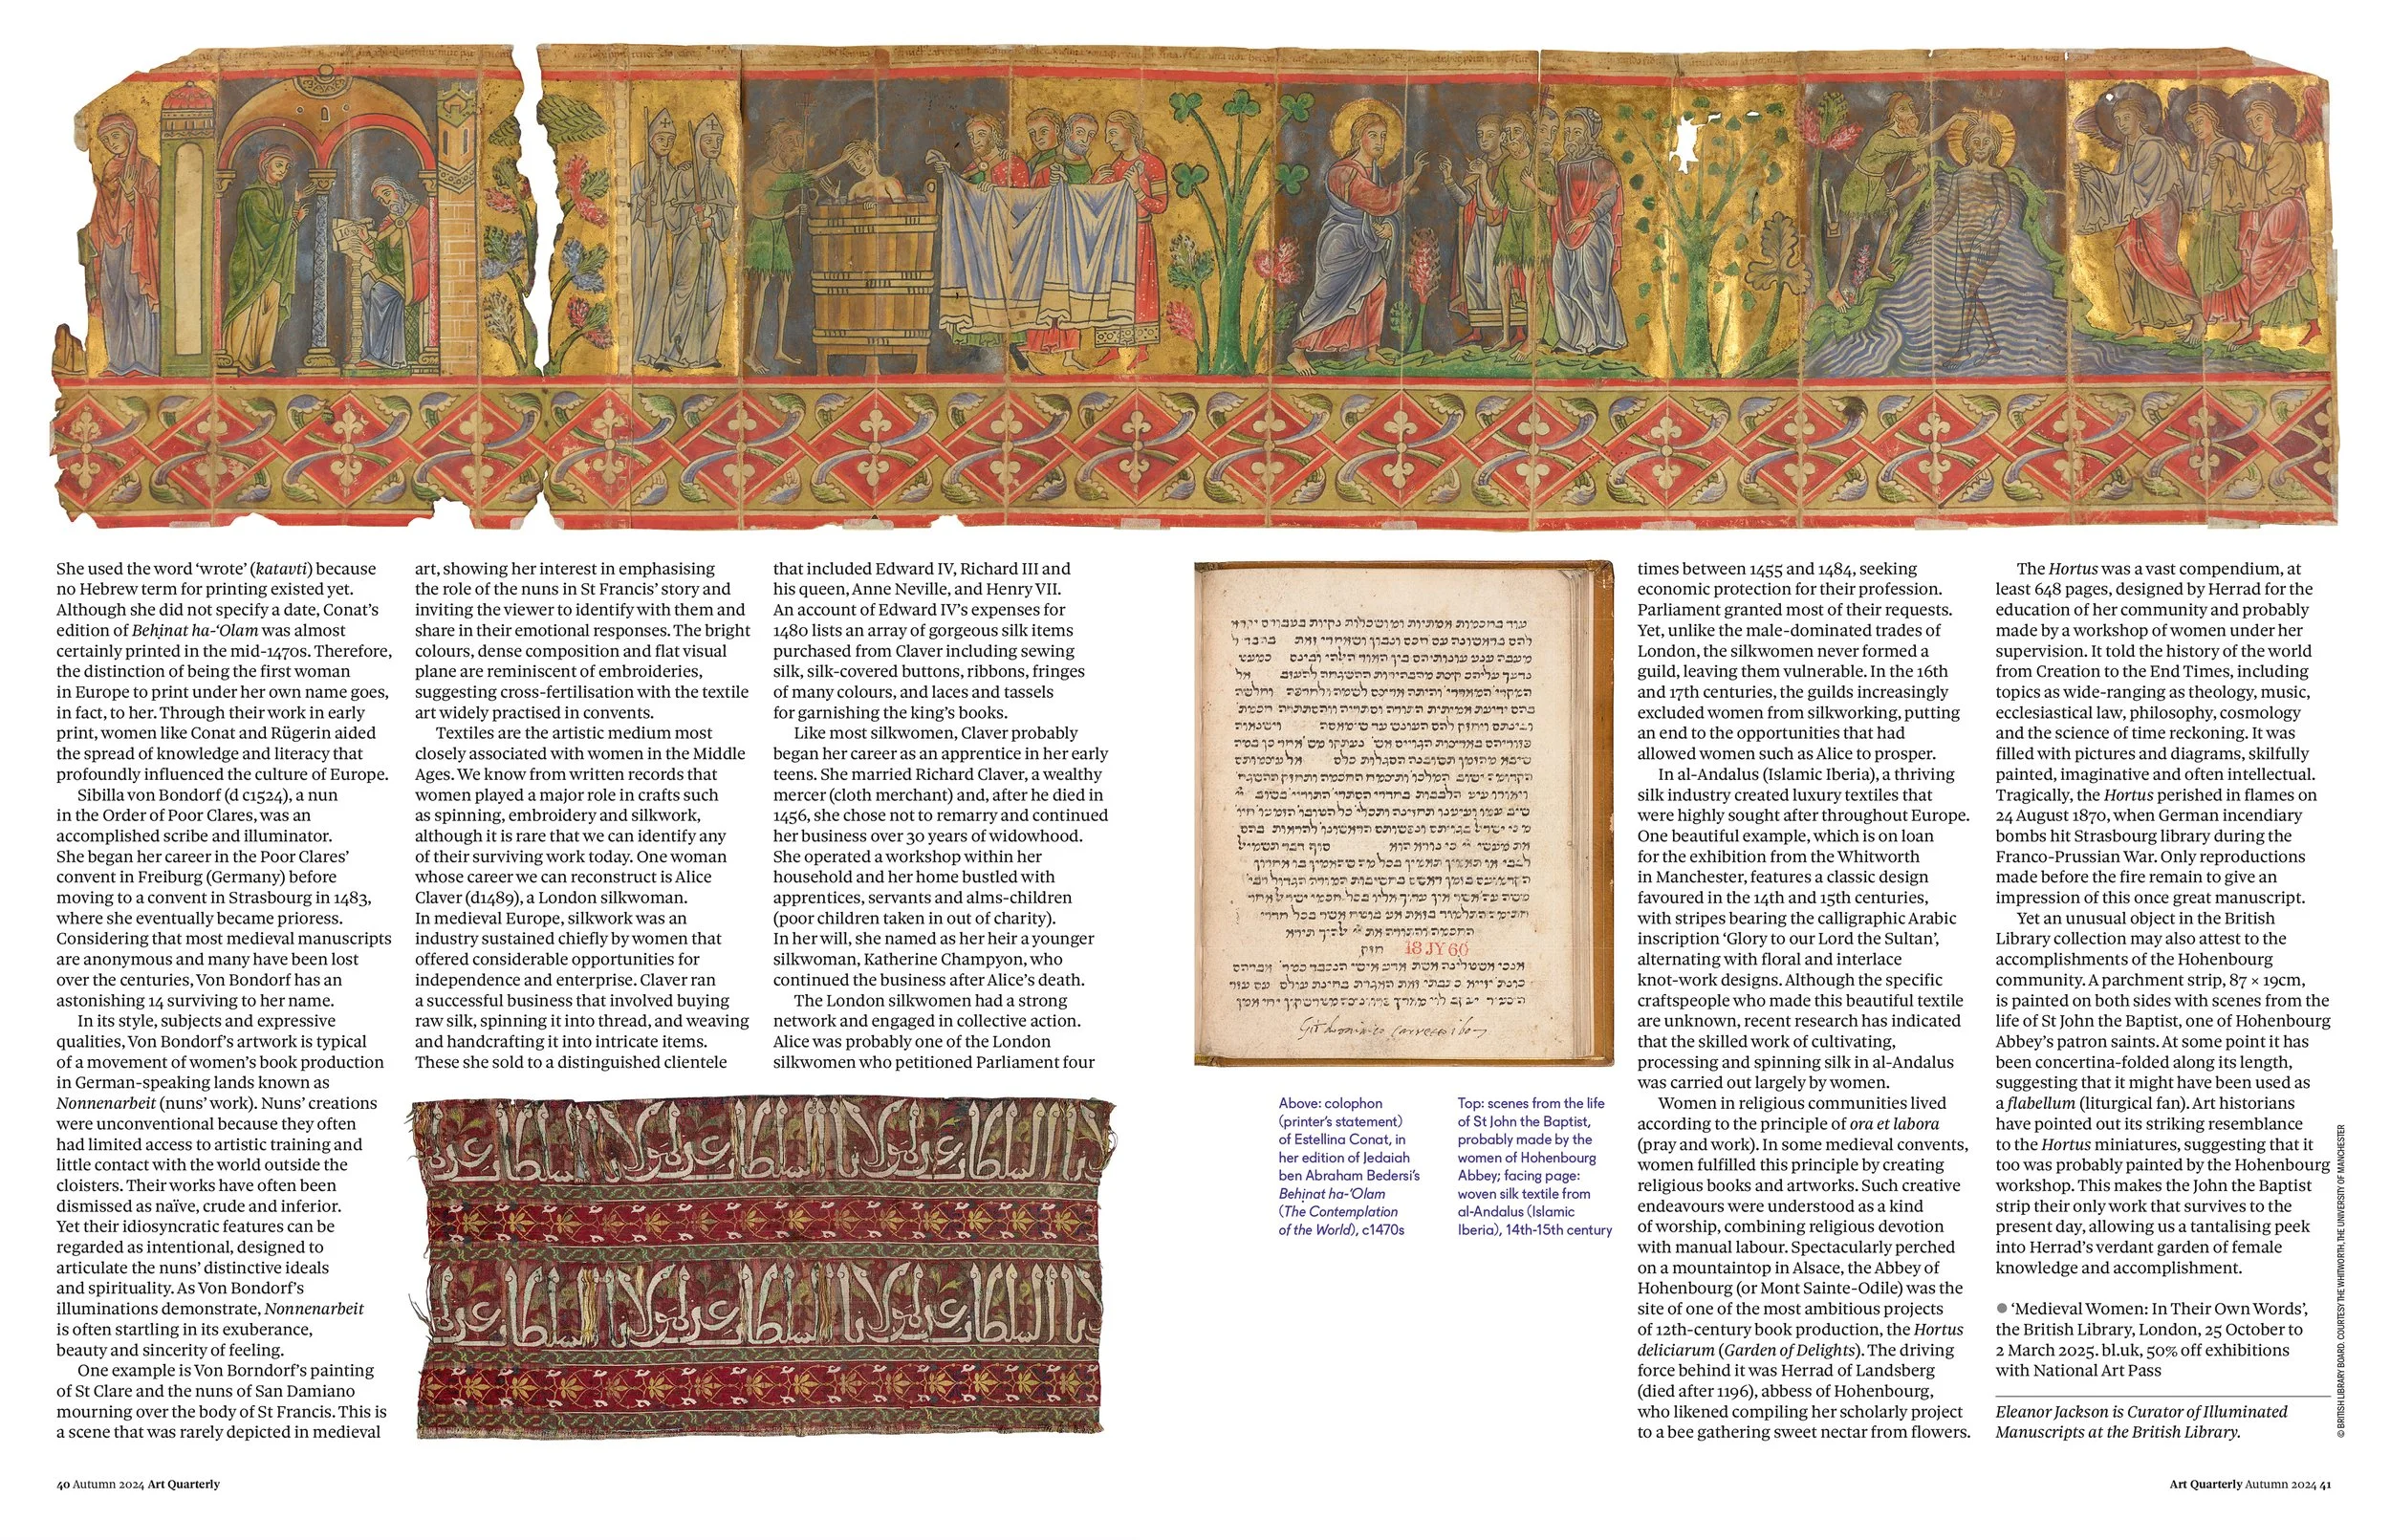 She used the word ‘wrote’ (katavti) because
no Hebrew term for printing existed yet.
Although she did not specify a date, Conat’s
edition of Beḥinat ha-‘Olam was almost
certainly printed in the mid-1470s. Therefore,
the distinction of being the first woman
in Europe to print under her own name goes,
in fact, to her. Through their work in early
print, women like Conat and Rügerin aided
the spread of knowledge and literacy that
profoundly influenced the culture of Europe.
Sibilla von Bondorf (d c1524), a nun
in the Order of Poor Clares, was an
accomplished scribe and illuminator.
She began her career in the Poor Clares’
convent in Freiburg (Germany) before
moving to a convent in Strasbourg in 1483,
where she eventually became prioress.
Considering that most medieval manuscripts
are anonymous and many have been lost
over the centuries, Von Bondorf has an
astonishing 14 surviving to her name.
In its style, subjects and expressive
qualities, Von Bondorf’s artwork is typical
of a movement of women’s book production
in German-speaking lands known as
Nonnenarbeit (nuns’ work). Nuns’ creations
were unconventional because they often
had limited access to artistic training and
little contact with the world outside the
cloisters. Their works have often been
dismissed as naïve, crude and inferior.
Yet their idiosyncratic features can be
regarded as intentional, designed to
articulate the nuns’ distinctive ideals
and spirituality. As Von Bondorf’s
illuminations demonstrate, Nonnenarbeit
is often startling in its exuberance,
beauty and sincerity of feeling.
One example is Von Borndorf’s painting
of St Clare and the nuns of San Damiano
mourning over the body of St Francis. This is
a scene that was rarely depicted in medieval
art, showing her interest in emphasising
the role of the nuns in St Francis’ story and
inviting the viewer to identify with them and
share in their emotional responses. The bright
colours, dense composition and flat visual
plane are reminiscent of embroideries,
suggesting cross-fertilisation with the textile
art widely practised in convents.
Textiles are the artistic medium most
closely associated with women in the Middle
Ages. We know from written records that
women played a major role in crafts such
as spinning, embroidery and silkwork,
although it is rare that we can identify any
of their surviving work today. One woman
whose career we can reconstruct is Alice
Claver (d1489), a London silkwoman.
In medieval Europe, silkwork was an
industry sustained chiefly by women that
offered considerable opportunities for
independence and enterprise. Claver ran
a successful business that involved buying
raw silk, spinning it into thread, and weaving
and handcrafting it into intricate items.
These she sold to a distinguished clientele
that included Edward IV, Richard III and
his queen, Anne Neville, and Henry VII.
An account of Edward IV’s expenses for
1480 lists an array of gorgeous silk items
purchased from Claver including sewing
silk, silk-covered buttons, ribbons, fringes
of many colours, and laces and tassels
for garnishing the king’s books.
Like most silkwomen, Claver probably
began her career as an apprentice in her early
teens. She married Richard Claver, a wealthy
mercer (cloth merchant) and, after he died in
1456, she chose not to remarry and continued
her business over 30 years of widowhood.
She operated a workshop within her
household and her home bustled with
apprentices, servants and alms-children
(poor children taken in out of charity).
In her will, she named as her heir a younger
silkwoman, Katherine Champyon, who
continued the business after Alice’s death.
The London silkwomen had a strong
network and engaged in collective action.
Alice was probably one of the London
silkwomen who petitioned Parliament four
18 JY 60
Above: colophon
(printer’s statement)
of Estellina Conat, in
her edition of Jedaiah
ben Abraham Bedersi’s
Beḥinat ha-‘Olam
(The Contemplation
of the World), c1470s
Top: scenes from the life
of St John the Baptist,
probably made by the
women of Hohenbourg
Abbey; facing page:
woven silk textile from
al-Andalus (Islamic
Iberia), 14th-15th century
times between 1455 and 1484, seeking
economic protection for their profession.
Parliament granted most of their requests.
Yet, unlike the male-dominated trades of
London, the silkwomen never formed a
guild, leaving them vulnerable. In the 16th
and 17th centuries, the guilds increasingly
excluded women from silkworking, putting
an end to the opportunities that had
allowed women such as Alice to prosper.
In al-Andalus (Islamic Iberia), a thriving
silk industry created luxury textiles that
were highly sought after throughout Europe.
One beautiful example, which is on loan
for the exhibition from the Whitworth
in Manchester, features a classic design
favoured in the 14th and 15th centuries,
with stripes bearing the calligraphic Arabic
inscription ‘Glory to our Lord the Sultan’,
alternating with floral and interlace
knot-work designs. Although the specific
craftspeople who made this beautiful textile
are unknown, recent research has indicated
that the skilled work of cultivating,
processing and spinning silk in al-Andalus
was carried out largely by women.
Women in religious communities lived
according to the principle of ora et labora
(pray and work). In some medieval convents,
women fulfilled this principle by creating
religious books and artworks. Such creative
endeavours were understood as a kind
of worship, combining religious devotion
with manual labour. Spectacularly perched
on a mountaintop in Alsace, the Abbey of
Hohenbourg (or Mont Sainte-Odile) was the
site of one of the most ambitious projects
of 12th-century book production, the Hortus
deliciarum (Garden of Delights). The driving
force behind it was Herrad of Landsberg
(died after 1196), abbess of Hohenbourg,
who likened compiling her scholarly project
to a bee gathering sweet nectar from flowers.
The Hortus was a vast compendium, at
least 648 pages, designed by Herrad for the
education of her community and probably
made by a workshop of women under her
supervision. It told the history of the world
from Creation to the End Times, including
topics as wide-ranging as theology, music,
ecclesiastical law, philosophy, cosmology
and the science of time reckoning. It was
filled with pictures and diagrams, skilfully
painted, imaginative and often intellectual.
Tragically, the Hortus perished in flames on
24 August 1870, when German incendiary
bombs hit Strasbourg library during the
Franco-Prussian War. Only reproductions
made before the fire remain to give an
impression of this once great manuscript.
Yet an unusual object in the British
Library collection may also attest to the
accomplishments of the Hohenbourg
community. A parchment strip, 87 × 19cm,
is painted on both sides with scenes from the
life of St John the Baptist, one of Hohenbourg
Abbey’s patron saints. At some point it has
been concertina-folded along its length,
suggesting that it might have been used as
a flabellum (liturgical fan). Art historians
have pointed out its striking resemblance
to the Hortus miniatures, suggesting that it
too was probably painted by the Hohenbourg
workshop. This makes the John the Baptist
strip their only work that survives to the
present day, allowing us a tantalising peek
into Herrad’s verdant garden of female
knowledge and accomplishment.
● ‘Medieval Women: In Their Own Words’,
the British Library, London, 25 October to
2 March 2025. bl.uk, 50% off exhibitions
with National Art Pass
Eleanor Jackson is Curator of Illuminated
Manuscripts at the British Library.
© BRITISH LIBRARY BOARD. COURTESY THE WHITWORTH, THE UNIVERSITY OF MANCHESTER
40 Autumn 2024 Art Quarterly
Art Quarterly Autumn 2024 41